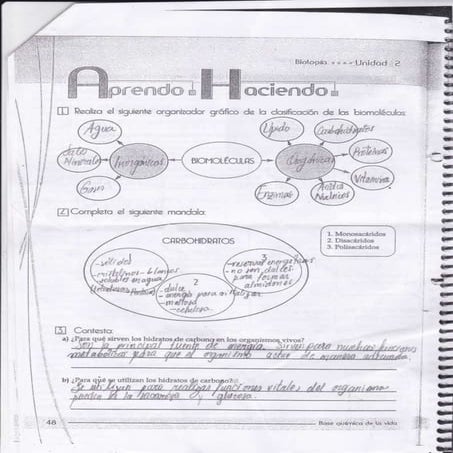 Biología Unidad 2
Aprendo Haciendo
1 Realiza el siguiente organizador gráfico de la clasificación de las biomoléculas:
Agua
Lípido
Carbohidratos
Sales
Minerales
Inorgánicas
BIOMOLÉCULAS
Orgánicas
Proteínas
Vitamina
Gases
Enzimas
Ácidos
Nucleicos
2 Completa el siguiente mandala:
CARBOHIDRATOS
1. Monosacáridos
2. Disacáridos
3. Polisacáridos
-sólidos
-cristalinos - blancos
-solubles en agua
3
-reservas energéticas
-no son dulces
para formar
almidones
2
dulce
-energía para
-maltosa
-celulosa
3 Contesta:
a) ¿Para qué sirven los hidratos de carbono en los organismos vivos?
Son la principal fuente de energía. Sirven para muchas funciones
metabólicas para que el organismo actúe de manera adecuada.
b) ¿Para qué se utilizan los hidratos de carbono?
Se utilizan para realizar funciones vitales del organismo
la sacarosa y glucosa.
48
Base química de la vida